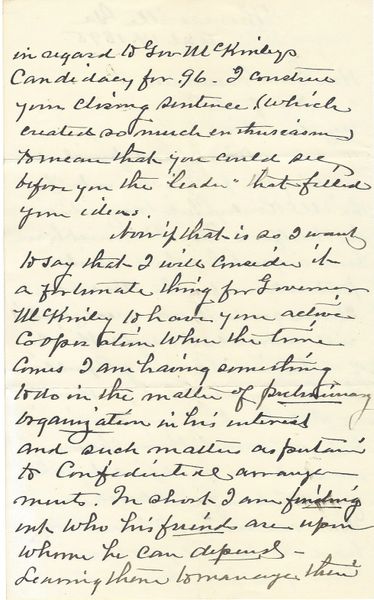 in regard to Gov McKinleys
Candidacy for .96 - I construe
your closing sentence (which
created so much enthusiasm)
to mean that you could see
before you the "leader" that filled
your ideas.
Now if that is so I want
to say that I will consider it
a fortunate thing for Governor
McKinley to have your active
Cooperation when the time
comes I am having something
to do in the matter of preliminary
organization in his interest
and such matters as pertain
to Confidential arrange
ments. In short I am finding
out who his friends are upon
whom he can depend -
Leaving them to manage their